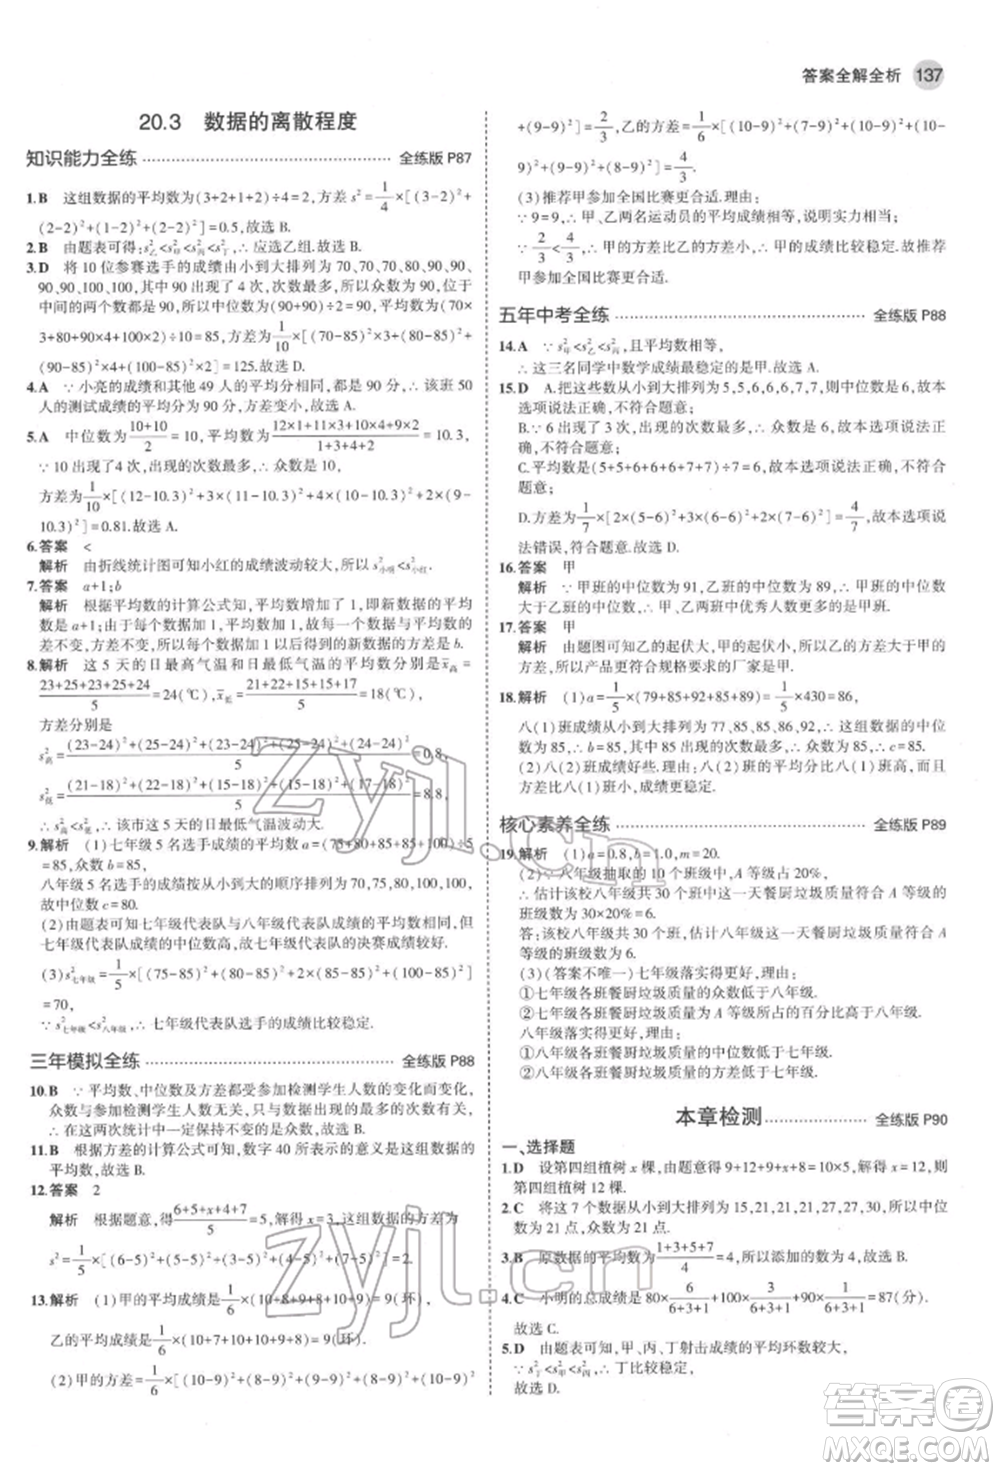 答案全解全析 137
20.3 数据的离散程度
知识能力全练 全练版 P87
1.B 这组数据的平均数为(3+2+1+2)÷4=2,方差 s²=1/4×[(3-2)²+
(2-2)²+(1-2)²+(2-2)²]=0.5,故选 B.
2.B 由题表可得;s²乙<s²丙<s²甲<s²丁,∴应选乙组.故选 B.
3.D 将 10 位参赛选手的成绩由小到大排列为 70,70,70,80,90,90,
90,90,100,100,其中 90 出现了 4 次,次数最多,所以众数为 90,位于
中间的两个数都是 90,所以中位数为(90+90)÷2=90,平均数为(70×
3+80+90×4+100×2)÷10=85,方差为1/10×[(70-85)²×3+(80-85)²+
(90-85)²×4+(100-85)²×2]=120.故选 D.
4.A ∵小亮的成绩和其他 49 人的平均数相同,都是 90 分,∴该班 50
人的测试成绩的平均分为 90 分,方差变小,故选 A.
5.A 中位数为(10+10)/2=10,平均数为(12×1+11×3+10×4+9×2)/(1+3+4+2)=10.3,
∵10 出现了4 次,出现的次数最多,∴众数是 10,
方差为1/10×[(12-10.3)²+3×(11-10.3)²+4×(10-10.3)²+2×(9-
10.3)²]=0.81.故选 A.
6.答案 <
解析 由折线统计图可知小红的成绩波动较大,∴s²小明<s²小红.
7.答案 a+1;b
解析 根据平均数的计算公式知,平均数增加了 1,即新数据的平均数
是 a+1;由于每个数据都加 1,故波动不变,平均数变化,
差不变,方差不变,所以每个数据加 1 以后得到的新数据的方差是 b.
8.解析 这 5 天的日最高气温和日最低气温的平均数分别是x̄高=
(23+25+23+25+24)/5=24(℃),x̄低=(21+22+15+15+17)/5=18(℃),
方差分别是
s²高=((23-24)²+(25-24)²+(23-24)²+(25-24)²+(24-24)²)/5=0.8,
s²低=((21-18)²+(22-18)²+(15-18)²+(15-18)²+(17-18)²)/5=8.8,
∴s²高<s²低,∴该市这 5 天的日最低气温波动大.
9.解析 (1)七年级 5 名选手的平均成绩 a=(75+80+85+85+100)÷5
=85,众数 b=85,
八年级 5 名选手的成绩按从小到大的顺序排列为 70,75,80,100,100,
故中位数 c=80.
(2)由题表可知七年级代表队与八年级代表队成绩的平均数相同,但
七年级代表队成绩的中位数高,故七年级代表队的决赛成绩较好.
(3)s²七年级=1/5×[(75-85)²+(80-85)²+(85-85)²+(85-85)²+(100-85)²]
=70,
∵s²七年级<s²八年级,∴七年级代表队选手的成绩比较稳定.
三年模拟全练 全练版 P88
10.B ∵平均数、中位数及方差都受参加检测学生人数的变化而变化,
众数与参加检测学生人数的变化无关,
∴在这一统计中一定保持不变的是众数,故选 B.
11.B 根据方差的计算公式可知,数字 40 所表示的意义是这组数据的
平均数,故选 B.
12.答案 2
解析 根据题意,得(6+5+x+4+7)/5=5,解得 x=3,这组数据的方差为
s²=1/5×[(6-5)²+(5-5)²+(3-5)²+(4-5)²+(7-5)²]=2.
13.解析 (1)甲的平均成绩是1/6×(10+8+9+8+10+9)=9(环),
乙的平均成绩是1/6×(10+7+10+10+9+8)=9(环).
(2)甲的方差=1/6×[(10-9)²+(8-9)²+(9-9)²+(8-9)²+(10-9)²
+(9-9)²]=2/3,乙的方差=1/6×[(10-9)²+(7-9)²+(10-9)²+(10-
9)²+(9-9)²+(8-9)²]=4/3.
(3)推荐甲参加全国比赛更合适.理由:
∵9=9,∴甲、乙两名运动员的平均成绩相等,说明实力相当;
∵2/3<4/3,∴甲的方差比乙的方差小,∴甲的成绩比较稳定.故推荐
甲参加全国比赛更合适.
五年中考全练 全练版 P88
14.A ∵s²甲<s²乙<s²丙,且平均数相等,
∴这三名同学中数学成绩最稳定的是甲.故选 A.
15.D A.把这些数从小到大排列为 5,5,6,6,6,7,7,则中位数是 6,故本
选项说法正确,不符合题意;
B.∵6 出现了 3 次,出现的次数最多,∴众数是 6,故本选项说法正
确,不符合题意;
C.平均数是(5+5+6+6+6+7+7)÷7=6,故本选项说法正确,不符合题
意;
D.方差=1/7×[2×(5-6)²+3×(6-6)²+2×(7-6)²]=4/7,故本选项说
法错误,符合题意.故选 D.
16.答案 甲
解析 ∵甲班的中位数为 91,乙班的中位数为 89,∴甲班的中位数
大于乙班的中位数,∴甲、乙两班中优秀人数更多的是甲班.
17.答案 甲
解析 由题图可知乙的起伏大,甲的起伏小,所以乙的方差大于甲的
方差,所以产品更符合规格要求的厂家是甲.
18.解析 (1)a=1/5×(79+85+92+85+89)=1/5×430=86,
八(1)班成绩从小到大排列为 77,85,85,86,92,∴这组数据的中位
数为 85,所以 b=85,众数为 85,所以 c=85.
(2)八(2)班成绩较好,理由:八(2)班的平均分比八(1)班高,
八(2)班的方差比八(1)班小,成绩更稳定,所以八(2)班成绩较好.
核心素养全练 全练版 P89
19.解析 (1)a=0.8,b=1.0,m=20.
(2)∵八年级抽取的 10 个班级中,A 等级占 20%,
∴估计该校八年级共 30 个班这一天餐厨垃圾质量符合 A 等级的
班级数为 30×20%=6.
答:该校八年级共 30 个班,估计八年级这一天餐厨垃圾质量符合 A
等级的班级数为 6.
(3)(答案不唯一)七年级落实得更好,理由:
①七年级各班餐厨垃圾质量的众数低于八年级.
②七年级各班餐厨垃圾质量的 A 等级的百分比高于八年级.
八年级落实得更好,理由:
①八年级各班餐厨垃圾质量的中位数低于七年级.
②八年级各班餐厨垃圾质量的方差低于七年级.
本章检测 全练版 P90
一、选择题
1.D 设第四组植树 x 棵,由题意可得 9+12+9+x+8=10×5,解得 x=12,则
第四组植树 12 棵.
2.C 将这 7 个数据从小到大排列为 15,21,21,21,27,27,30,所以中位
数为 21 点,众数为 21 点.
3.B 原数据的平均数为(1+3+5+7)/4=4,所以添加的数为 4,故选 B.
4.C 小明的总成绩是 80×6/(6+3+1)+100×3/(6+3+1)+90×1/(6+3+1)=87(分).
故选 C.
5.D 由题意可知,甲、丙、丁射击成绩的平均环数较大,
∵s²丁<s²甲<s²丙,∴丁比较稳定,
故选 D.
zyjl.cn
zyjl.cn
答案圈
MXQE.COM